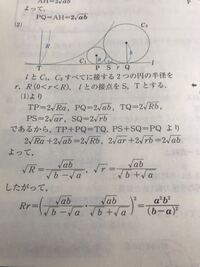 よって，
PQ=AH=2√ab
(2)
R
C₁
C₂
a
b
r
T P S Q l
l と C₁, C₂ すべてに接する2つの円の半径を
r, R (0<r<R), l との接点をS, Tとする。
(1)より
TP=2√Ra, PQ=2√ab, TQ=2√Rb,
PS=2√ar, SQ=2√rb
であるから，TP+PQ=TQ, PS+SQ=PQ より
2√Ra+2√ab=2√Rb, 2√ar+2√rb=2√ab
よって，
√R=√ab/(√b−√a), √r=√ab/(√b+√a)
したがって，
Rr=(√ab/(√b−√a)・√ab/(√b+√a))²=a²b²/(b−a)²